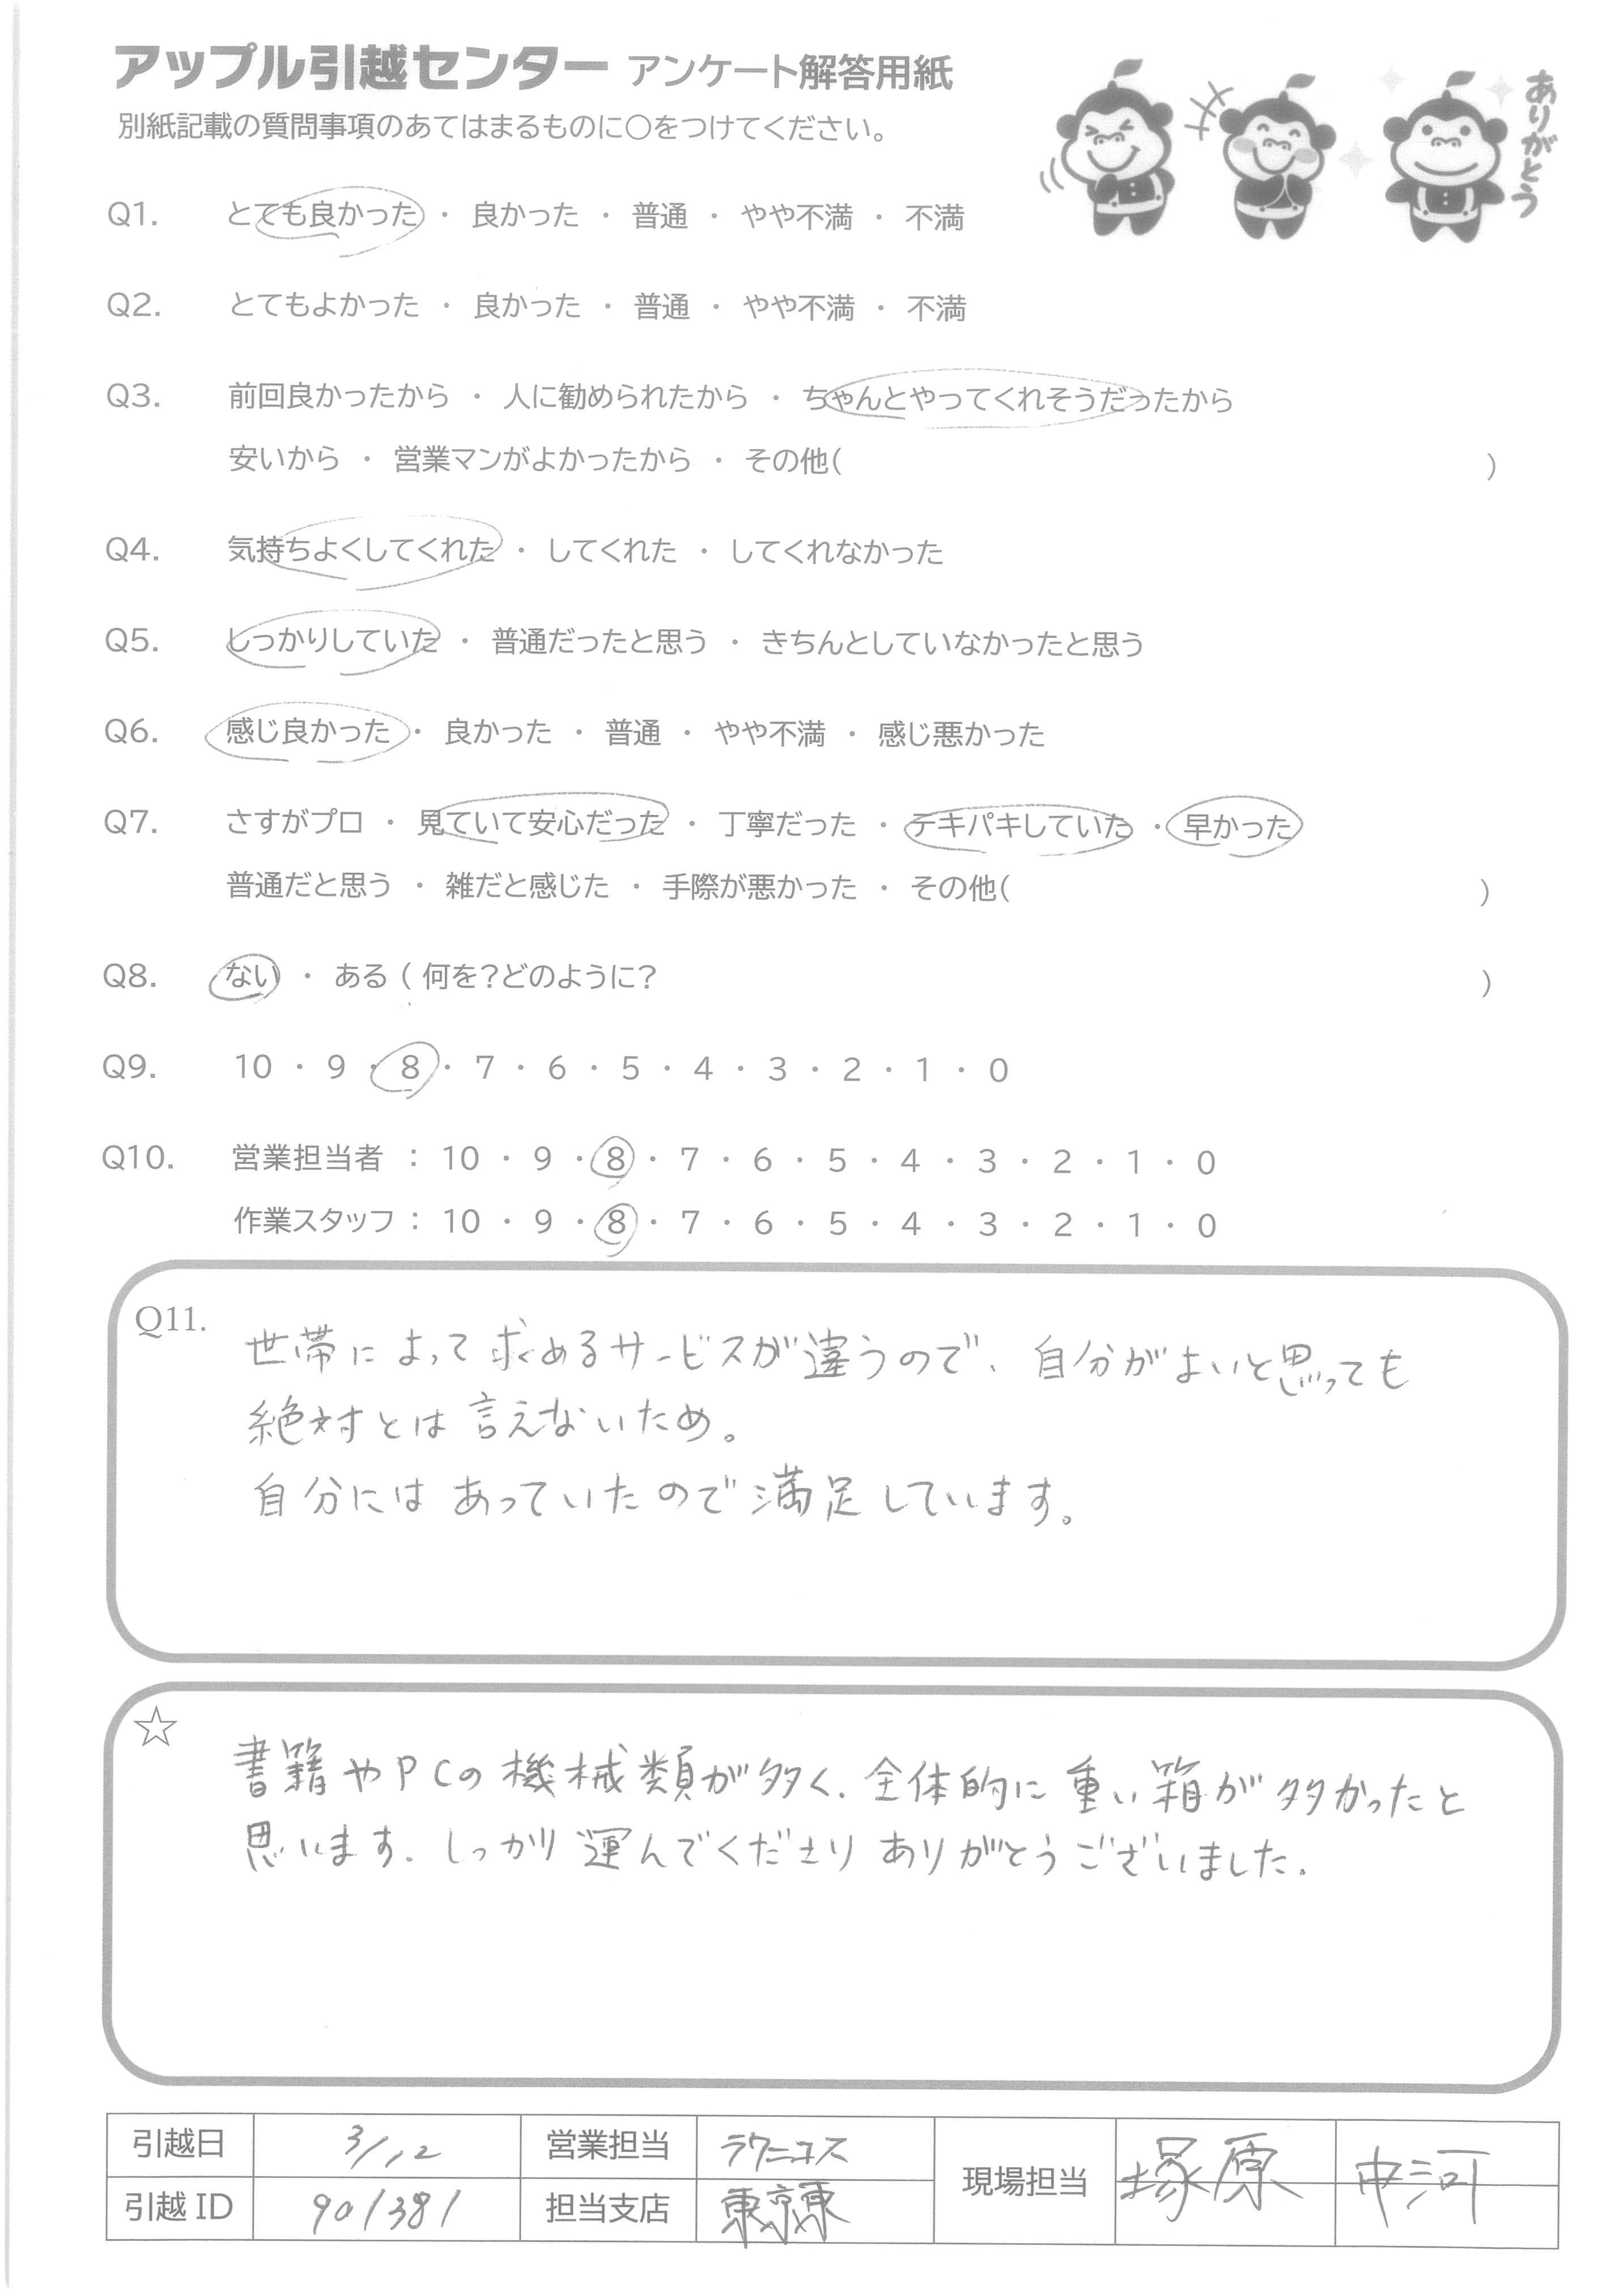 アップル引越センター アンケート解答用紙
ありがとう
別紙記載の質問事項のあてはまるものに○をつけてください。
Q1. とても良かった ・ 良かった ・ 普通 ・ やや不満 ・ 不満
Q2. とてもよかった ・ 良かった ・ 普通 ・ やや不満 ・ 不満
Q3. 前回良かったから ・ 人に勧められたから ・ ちゃんとやってくれそうだったから
安いから ・ 営業マンがよかったから ・ その他( )
Q4. 気持ちよくしてくれた ・ してくれた ・ してくれなかった
Q5. しっかりしていた ・ 普通だったと思う ・ きちんとしていなかったと思う
Q6. 感じ良かった ・ 良かった ・ 普通 ・ やや不満 ・ 感じ悪かった
Q7. さすがプロ ・ 見ていて安心だった ・ 丁寧だった ・ テキパキしていた ・ 早かった
普通だと思う ・ 雑だと感じた ・ 手際が悪かった ・ その他( )
Q8. ない ・ ある ( 何を?どのように? )
Q9. 10 ・ 9 ・ 8 ・ 7 ・ 6 ・ 5 ・ 4 ・ 3 ・ 2 ・ 1 ・ 0
Q10. 営業担当者 : 10 ・ 9 ・ 8 ・ 7 ・ 6 ・ 5 ・ 4 ・ 3 ・ 2 ・ 1 ・ 0
作業スタッフ : 10 ・ 9 ・ 8 ・ 7 ・ 6 ・ 5 ・ 4 ・ 3 ・ 2 ・ 1 ・ 0
Q11. 世帯によって求めるサービスが違うので、自分がよいと思っても
絶対とは言えないため。
自分にはあっていたので満足しています。
☆ 書籍やPCの機械類が多く、全体的に重い箱が多かったと
思います。しっかり運んでくださりありがとうございました。
引越日 3/12 営業担当 ラクニコス 現場担当 塚原 中河
引越ID 901381 担当支店 東京東